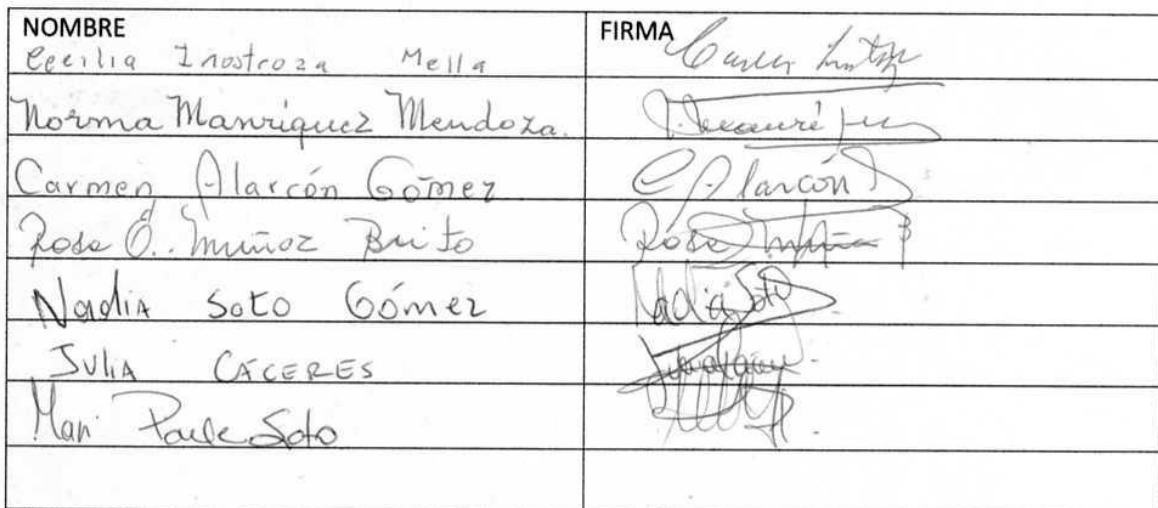 NOMBRE FIRMA
Cecilia Inostroza Mella
Norma Manriquez Mendoza.
Carmen Alarcón Gómez C Alarcón
Rosa E. Muñoz Brito Rosa Muñoz B
Nadia Soto Gómez Nadia Soto
Julia CÁCERES
Mari Paule Soto